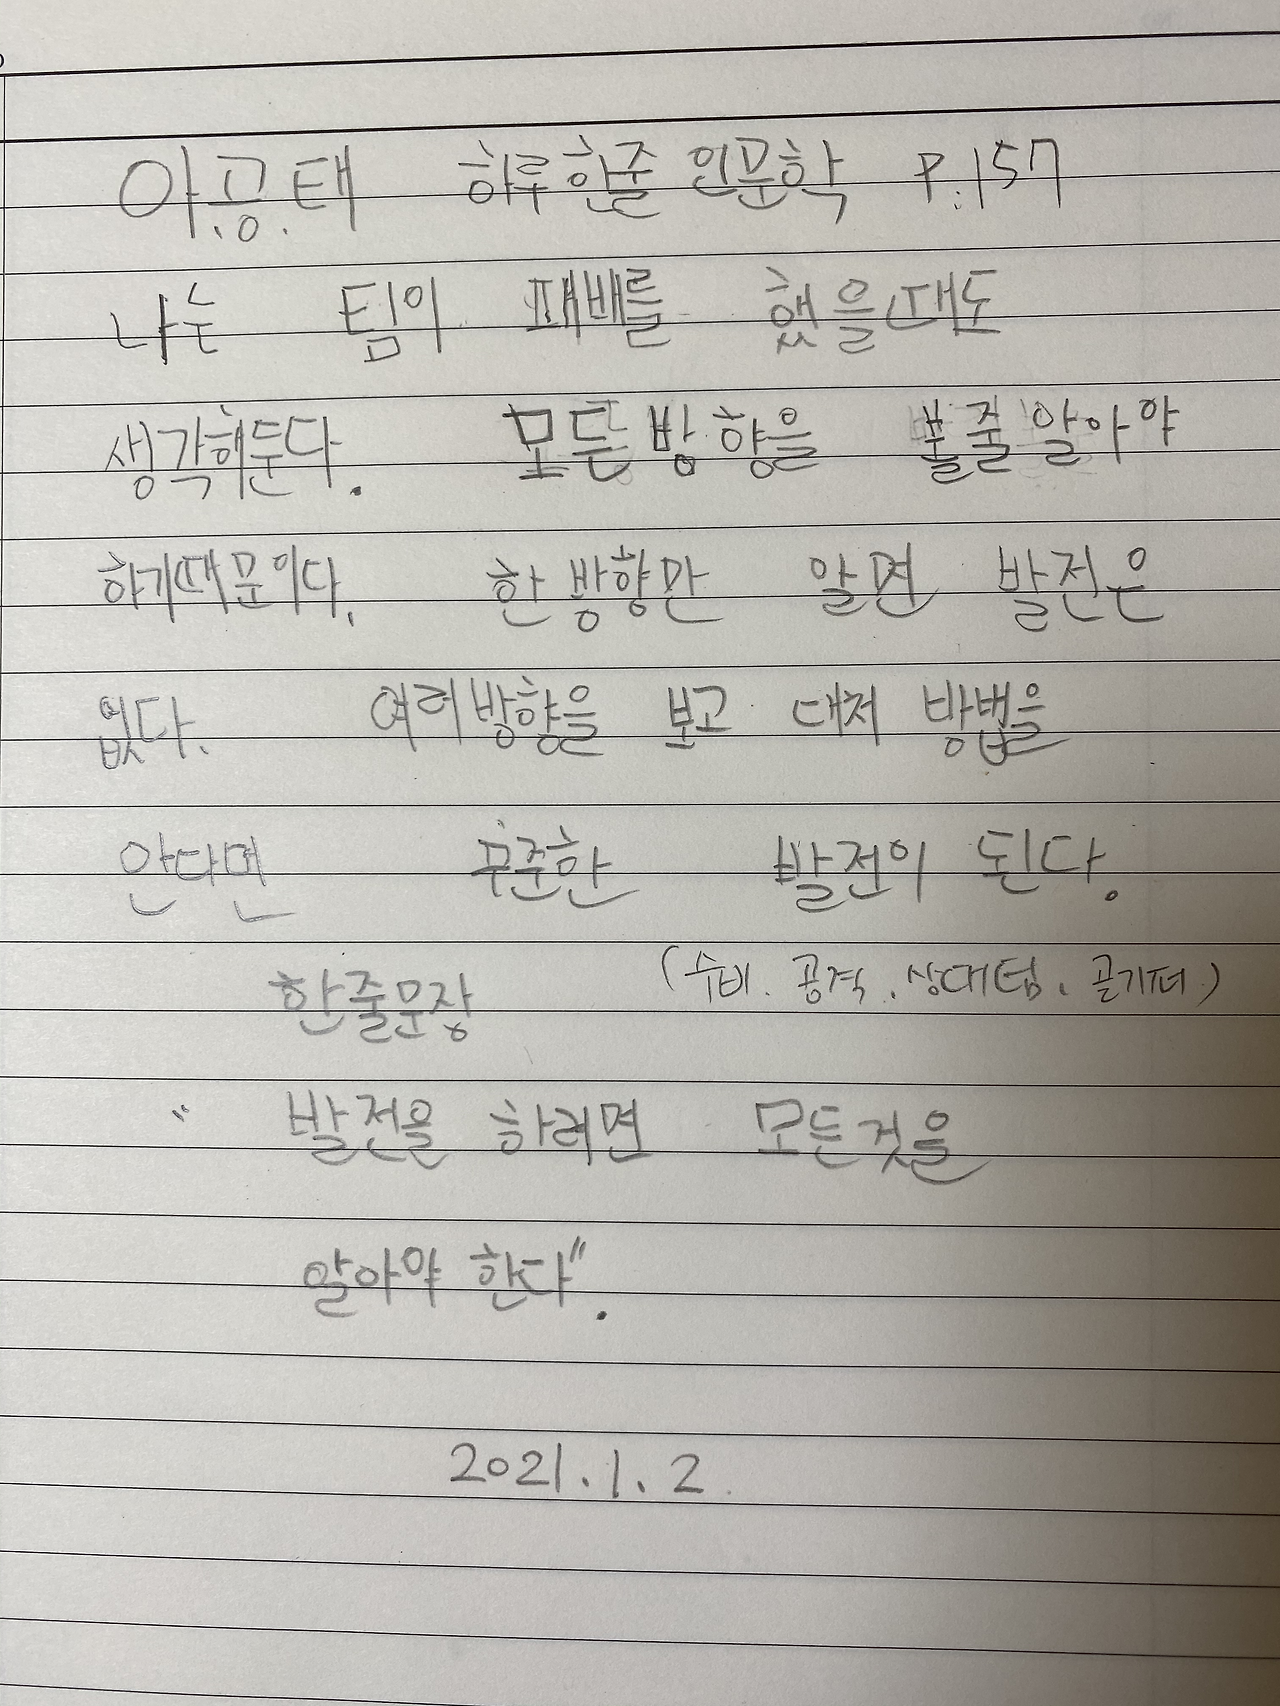 아.공.태 하루한줄 인문학 P.157
나는 팀이 패배를 했을때도
생각해둔다. 모든방향을 볼줄알아야
하기때문이다. 한방향만 알면 발전은
없다. 여러방향을 보고 대처 방법을
안다면 꾸준한 발전이 된다.
(수비. 공격. 상대팀. 골키퍼)
한줄문장
" 발전을 하려면 모든것을
알아야 한다".
2021.1.2